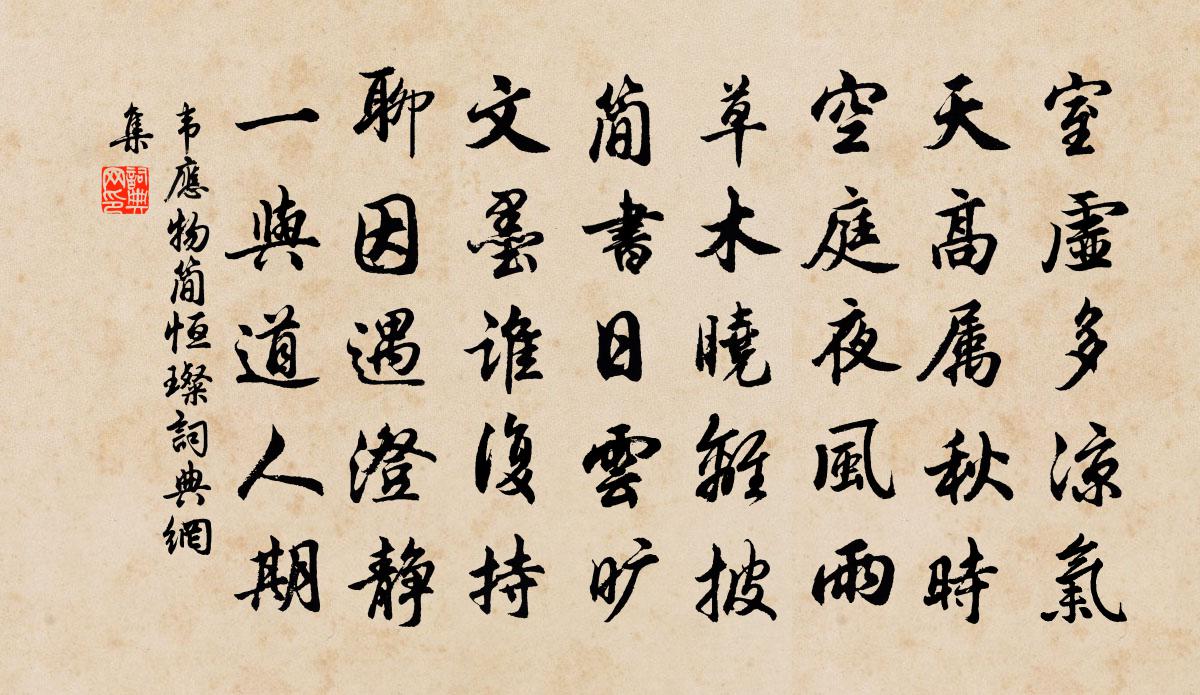 室虛多涼氣
天高属秋時
空庭夜風雨
草木曉離披
简書日雲旷
文墨誰復持
聊因遇澄静
一與道人期
韦應物简恒璨詞典網
集
詞典
网印